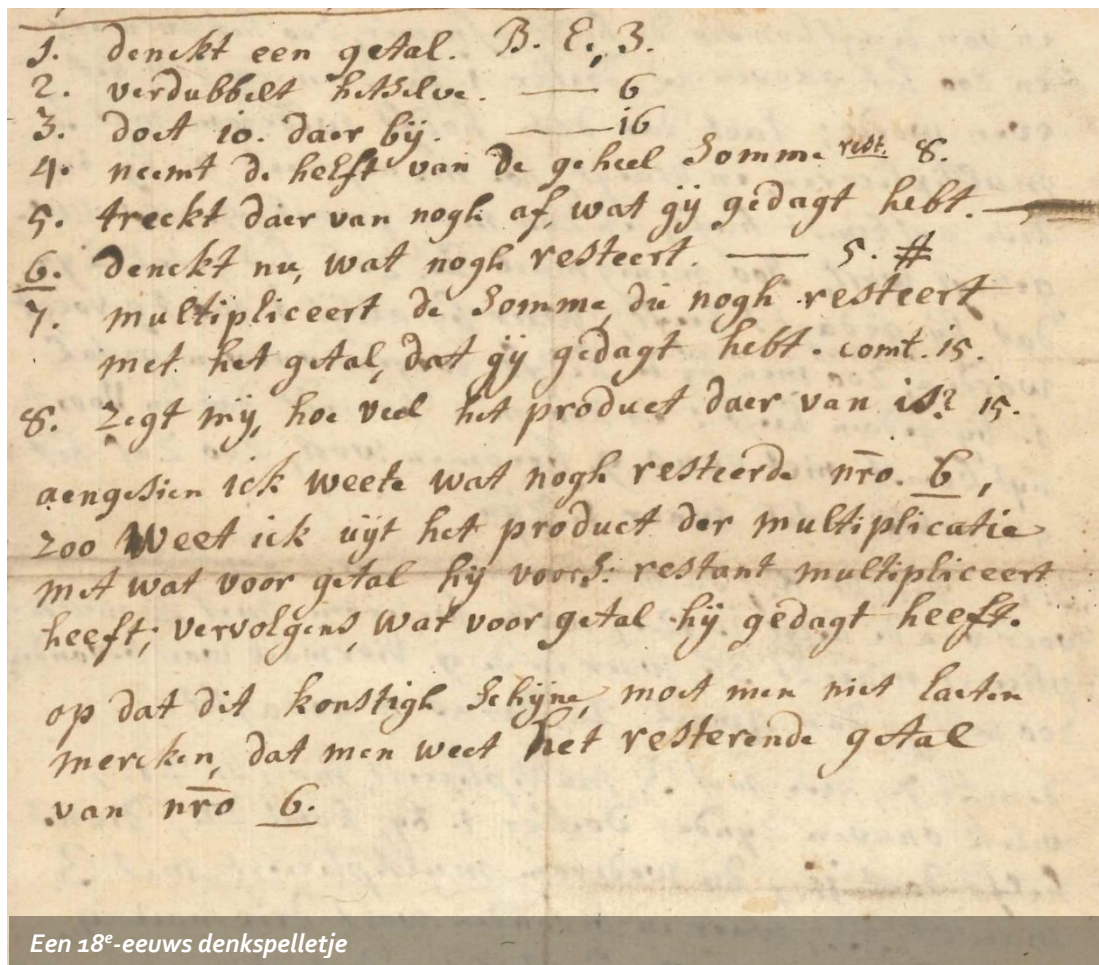 1. denckt een getal. B. E; 3.
2. verdubbelt hetselve. — 6
3. doet 10. daer bij. — 16
4. neemt de helft van de geheel somme rest. 8.
5. treckt daer van nogh af, wat gij gedagt hebt. —
6. denckt nu, wat nogh resteert. — 5. #
7. multipliceert de somme, die nogh resteert
met het getal, dat gij gedagt hebt. comt. 15.
8. Zegt mij, hoe veel het product daer van is? 15.
aengesien ick weete wat nogh resteerde nr̄o. 6,
zoo weet ick uijt het product der multiplicatie
met wat voor getal hij voors: restant multipliceert
heeft; vervolgens, wat voor getal hij gedagt heeft.
op dat dit konstigh schijne, moet men niet laeten
mercken, dat men weet het resterende getal
van nr̄o 6.
Een 18e-eeuws denkspelletje